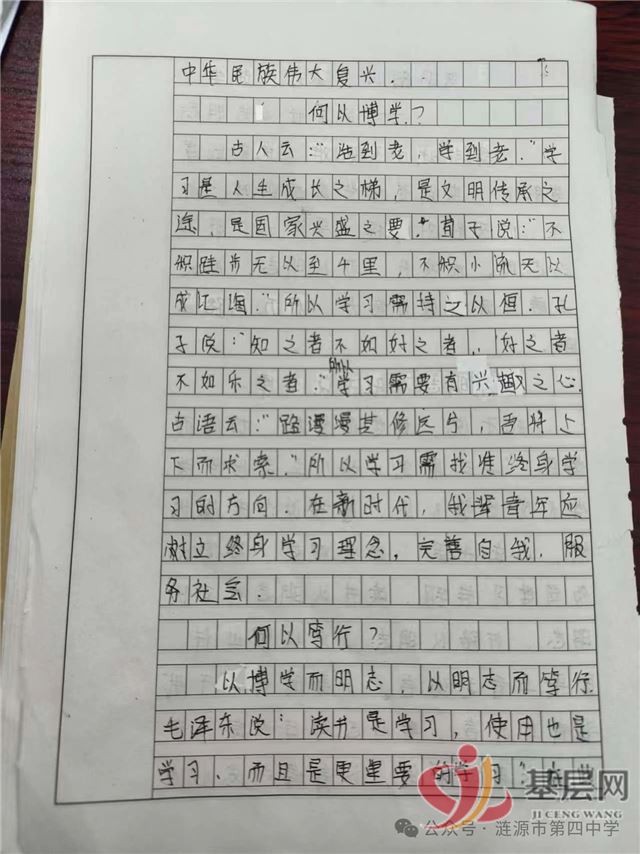 中华民族伟大复兴.
何以博学?
古人云:"活到老,学到老."学
习是人生成长之梯,是文明传承之
途,是国家兴盛之要.荀子说:"不
积跬步无以至千里,不积小流无以
成江海."所以学习需持之以恒.孔
子说:"知之者不如好之者,好之者
不如乐之者."所以学习需要有兴趣之心.
古语云:"路漫漫其修远兮,吾将上
下而求索."所以学习需找准终身学
习的方向.在新时代,我辈青年应
树立终身学习理念,完善自我,服
务社会.
何以笃行?
以博学而明志,以明志而笃行.
毛泽东说:读书是学习,使用也是
学习,而且是更重要的学习"
基层网
JI CENG WANG
公众号·涟源市第四中学